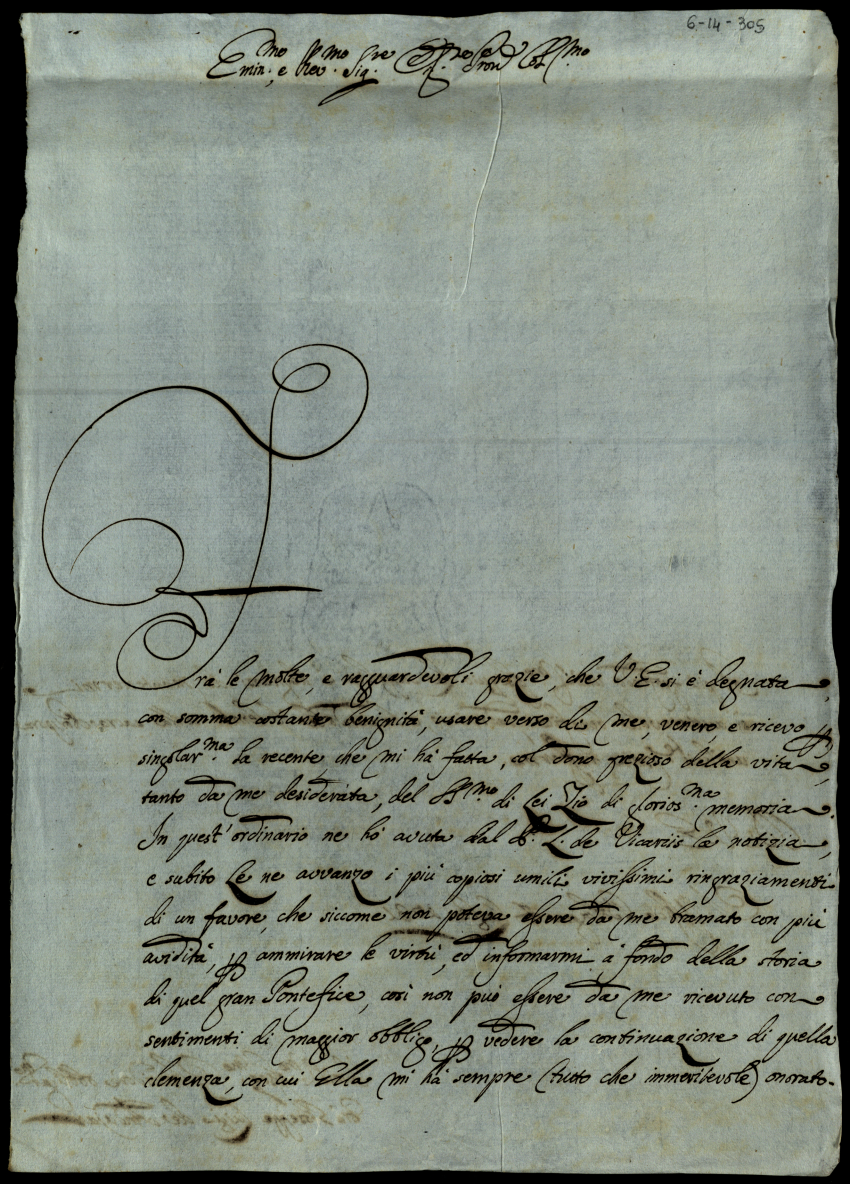 6-14-305
Emin.mo e Rev.mo Sig.re Sig.re e Pron Col.mo
Frà le molte, e ragguardevoli grazie, che V. E. si è degnata,
con somma costante benignità, usare verso di me, venero, e ricevo p
singolar.ma la recente, che mi hà fatta, col dono grezioso della vita,
tanto da me desiderata, del SS.mo di Lei Zio di glorios.ma memoria.
In quest' ordinario ne hò avuta dal P. L. de Vicariis la notizia,
e subito Le ne avvanzo i più copiosi umili vivissimi ringraziamenti
di un favore, che siccome non poteva essere da me bramato con più
avidità, p ammirare le virtù, ed informarmi à fondo della storia
di quel gran Pontefice, così non può essere da me ricevuto con
sentimenti di maggior obbligo, p vedere la continuazione di quella
clemenza, con cui Ella mi hà sempre (tutto che immeritevole) onorato.